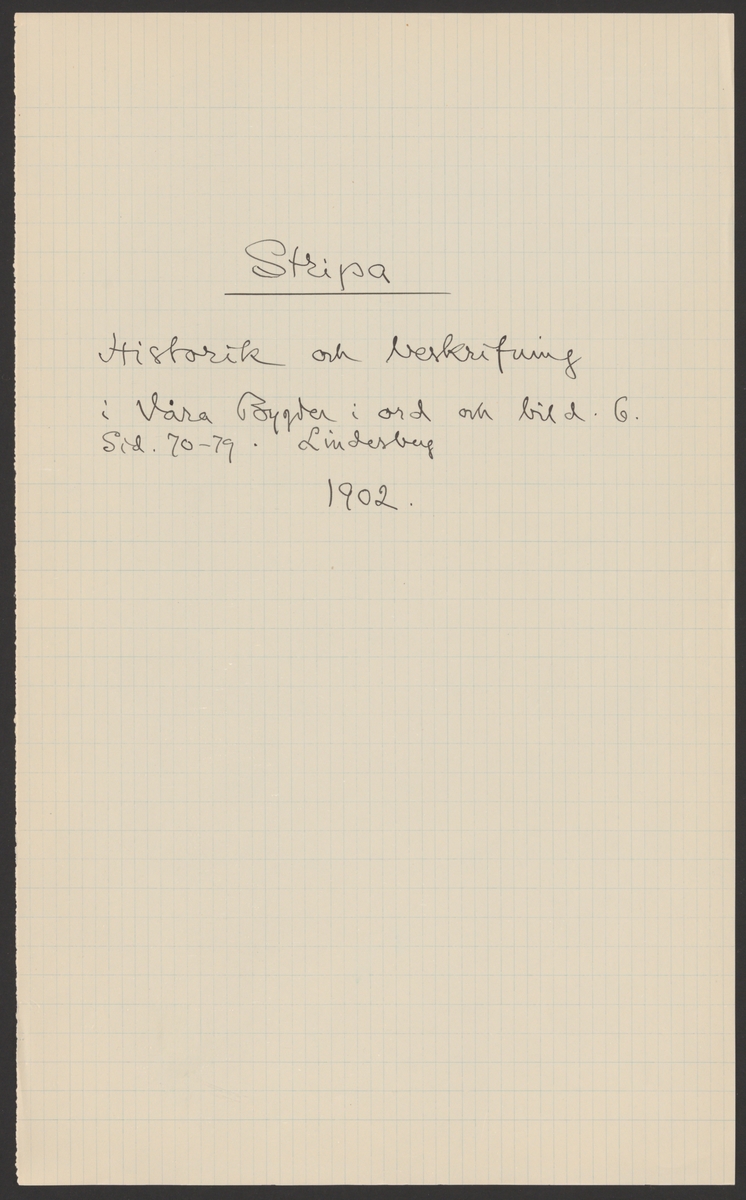 Stripa
Historik och beskrifning
i Våra Bygder i ord och bild. 6.
Sid. 70-79. Lindesberg
1902.